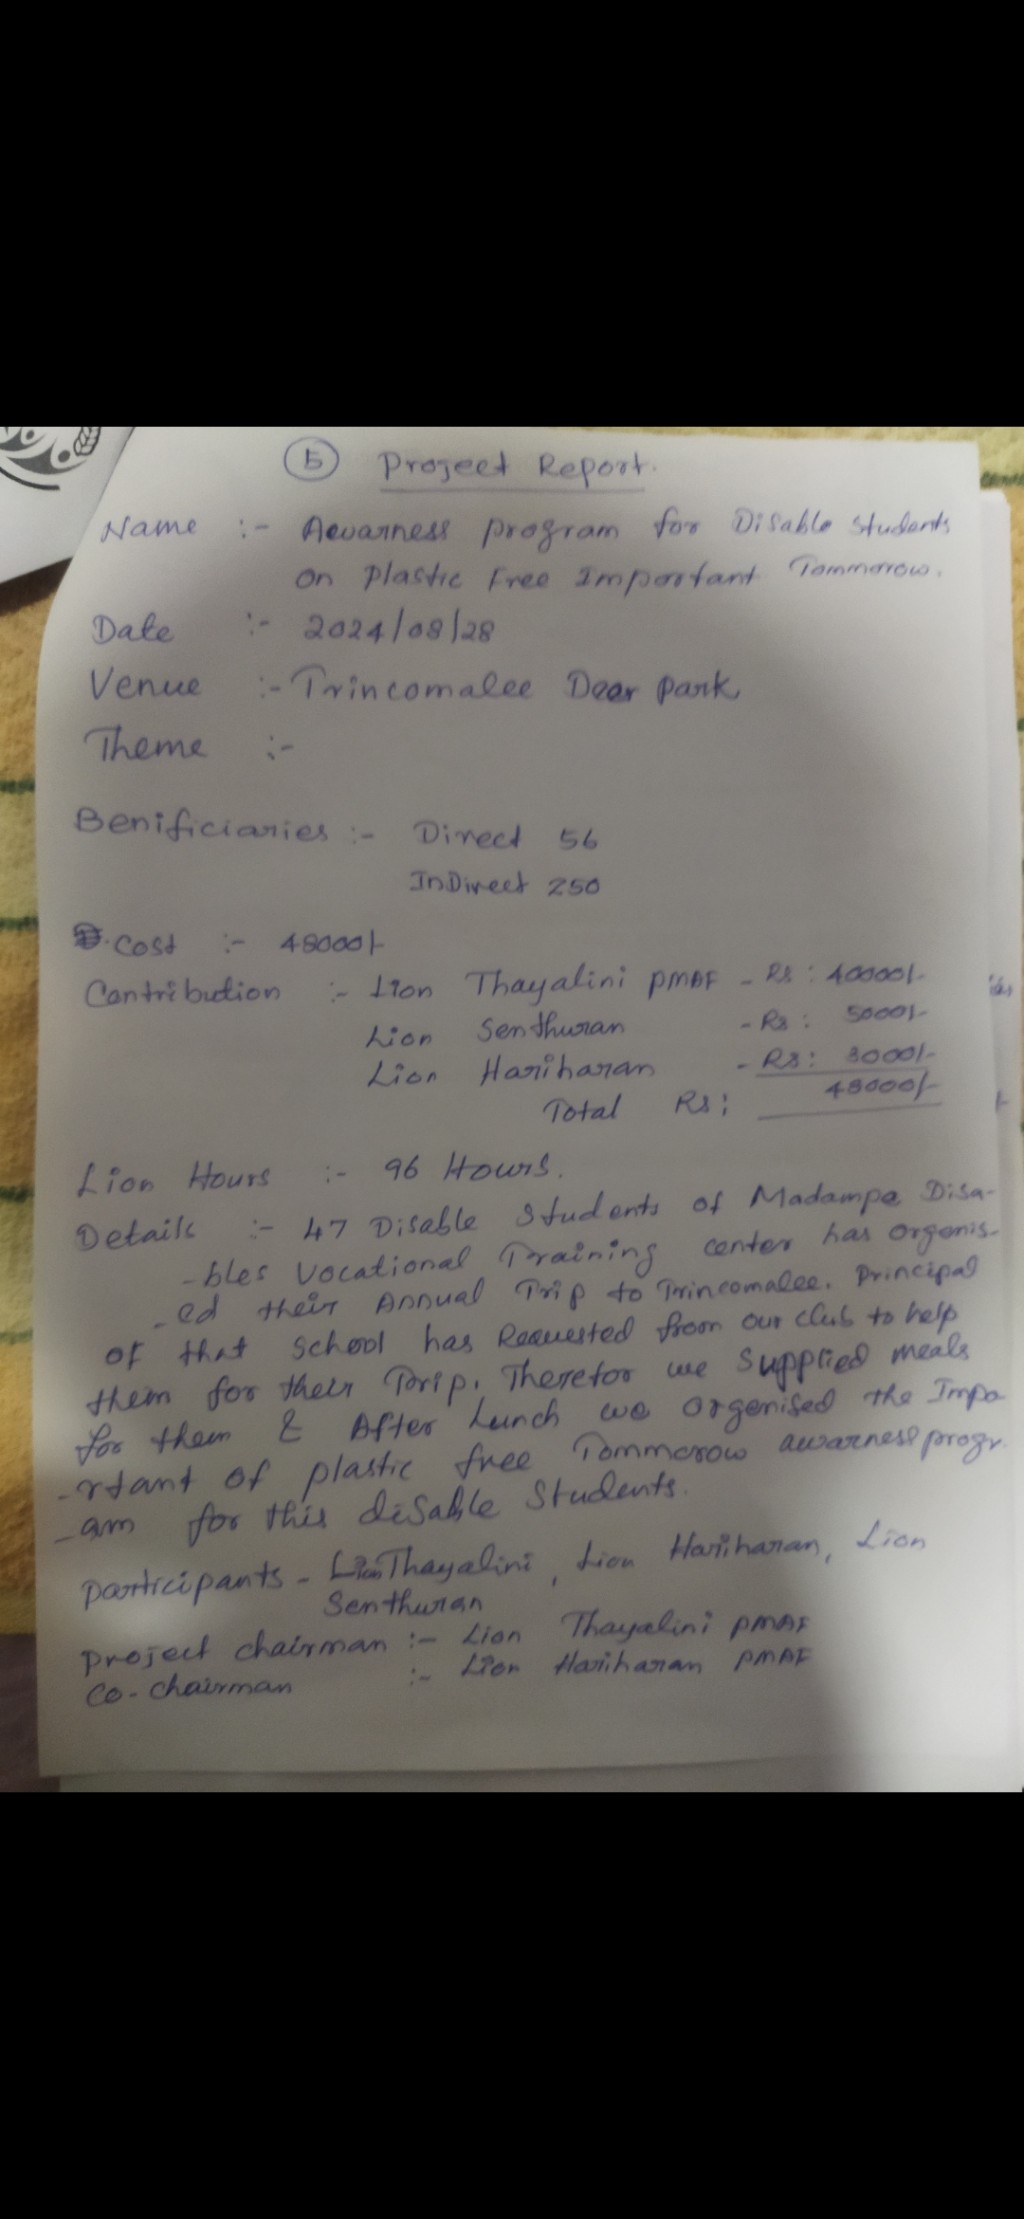 5 Project Report.
Name :- Aewarness program for Disable Students
on Plastic Free Important Tommorow.
Date :- 2024/08/28
Venue :- Trincomalee Deer park
Theme :-
Benificiaries :- Direct 56
InDirect 250
Cost :- 48000/-
Contribution :- Lion Thayalini PMAF - Rs : 40000/-
Lion Senthuran - Rs : 5000/-
Lion Hariharan - Rs : 3000/-
Total Rs : 48000/-
Lion Hours :- 96 Hours.
Details :- 47 Disable Students of Madampe Disa-
-bles Vocational Training center has organis-
-ed their Annual Trip to Trincomalee. Principal
of that School has Requested from our club to help
them for their Trip. Therefor we Supplied meals
for them & After Lunch we orgenised the Impo
-rtant of plastic free Tommorow awarness progr
-am for this disable Students.
participants - Lion Thayalini, Lion Hariharan, Lion
Senthuran
project chairman :- Lion Thayalini PMAF
Co-chairman :- Lion Hariharan PMAF